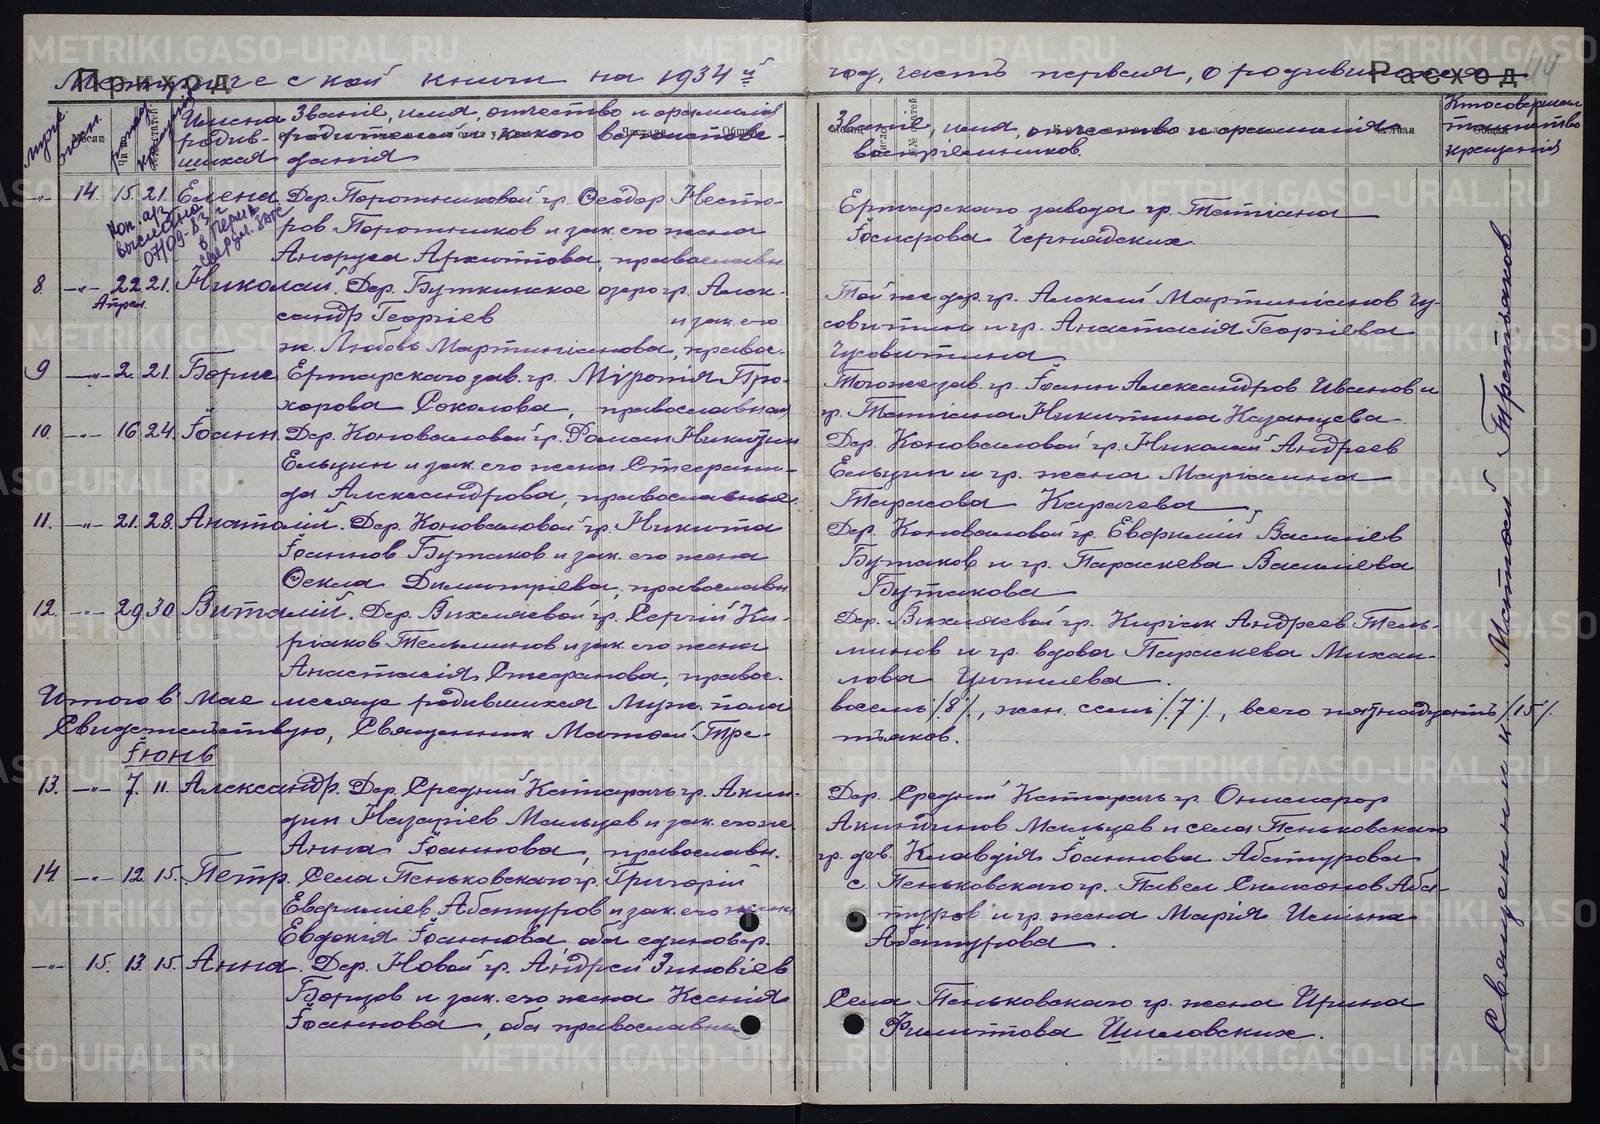 Метрической книги на 1934 й год, часть первая, о родившихся
Приход
Расход
14
муж.
жен.
рожд.
крещенія
Имена родив-
шихся
Званіе, имя, отчество и фамилія
родителей и какого вероиспове-
данія
Званіе, имя, отчество и фамилія
воспріемников.
Кто совершал
таинство
крещенія
„ 14. 15. 21. Елена Дер. Поротниковой гр. Феодор Несто-
ров Поротников и зак. его жена
Анфуса Архиппова, православн
Ертарского завода гр. Татіана
Госифова Чернядских
Коп. арх.
выслана
8. -„- 22. 21. Николай. Дер. Буткинское озеро гр. Алек-
Апрел.
сандр Георгіев и зак. его
ж. Любовь Мартиніанова, правос.
Той же дер. гр. Алексей Мартиніанов Чу-
совитин и гр. Анастасія Георгіева
Чусовитина
9 -„- 2. 21. Борис Ертарского зав. гр. Миропія Про-
хорова Соколова, православная
Того же зав. гр. Іоанн Александров Иванов и
гр. Татіана Никитина Казанцева
10. -„- 16 24. Іоанн. Дер. Коноваловой гр. Роман Никитин
Ельцин и зак. его жена Стефани-
да Александрова, православные.
Дер. Коноваловой гр. Николай Андреев
Ельцин и гр. жена Маріанна
Тарасова Карачева
11. -„- 21. 28. Анатолій. Дер. Коноваловой гр. Никита
Іоаннов Бутаков и зак. его жена
Фекла Димитріева, православн
Дер. Коноваловой гр. Евфимий Василіев
Бутаков и гр. Параскева Василіева
Бутакова
12. -„- 29. 30. Виталій. Дер. Вихляевой гр. Сергій Ки-
ріаков Тельминов и зак. его жена
Анастасія Стефанова, правос.
Дер. Вихляевой гр. Киріак Андреев Тель-
минов и гр. вдова Параскева Михаи-
лова Цитилева.
Итого в Мае месяце родившихся Муж. пола восемь /8/, жен. семь /7/, всего пятнадцать /15/.
Свидетельствую, Священник Матфей Тре-
тьяков.
Іюнь
13. -„- 7. 11. Александр. Дер. Средний Катарач гр. Акин-
дин Назаріев Мальцев и зак. его же
Анна Іоаннова, православн.
Дер. Средний Катарач гр. Онисифор
Акиндинов Мальцев и села Пеньковского
гр. дев. Клавдія Іоаннова Абатурова
14. -„- 12. 15. Петр. Села Пеньковского гр. Григорій
Евфиміев Абатуров и зак. его жена
Евдокія Іоаннова, оба единовер.
с. Пеньковского гр. Павел Симеонов Аба-
туров и гр. жена Марія Исаина
Абатурова.
-„- 15. 13. 15. Анна. Дер. Новой гр. Андрей Зиновіев
Борцов и зак. его жена Ксенія
Іоаннова, оба православны
Села Пеньковского гр. жена Ирина
Филиппова Шиловских.
Священник Матфей Третьяков
METRIKI.GASO-URAL.RU